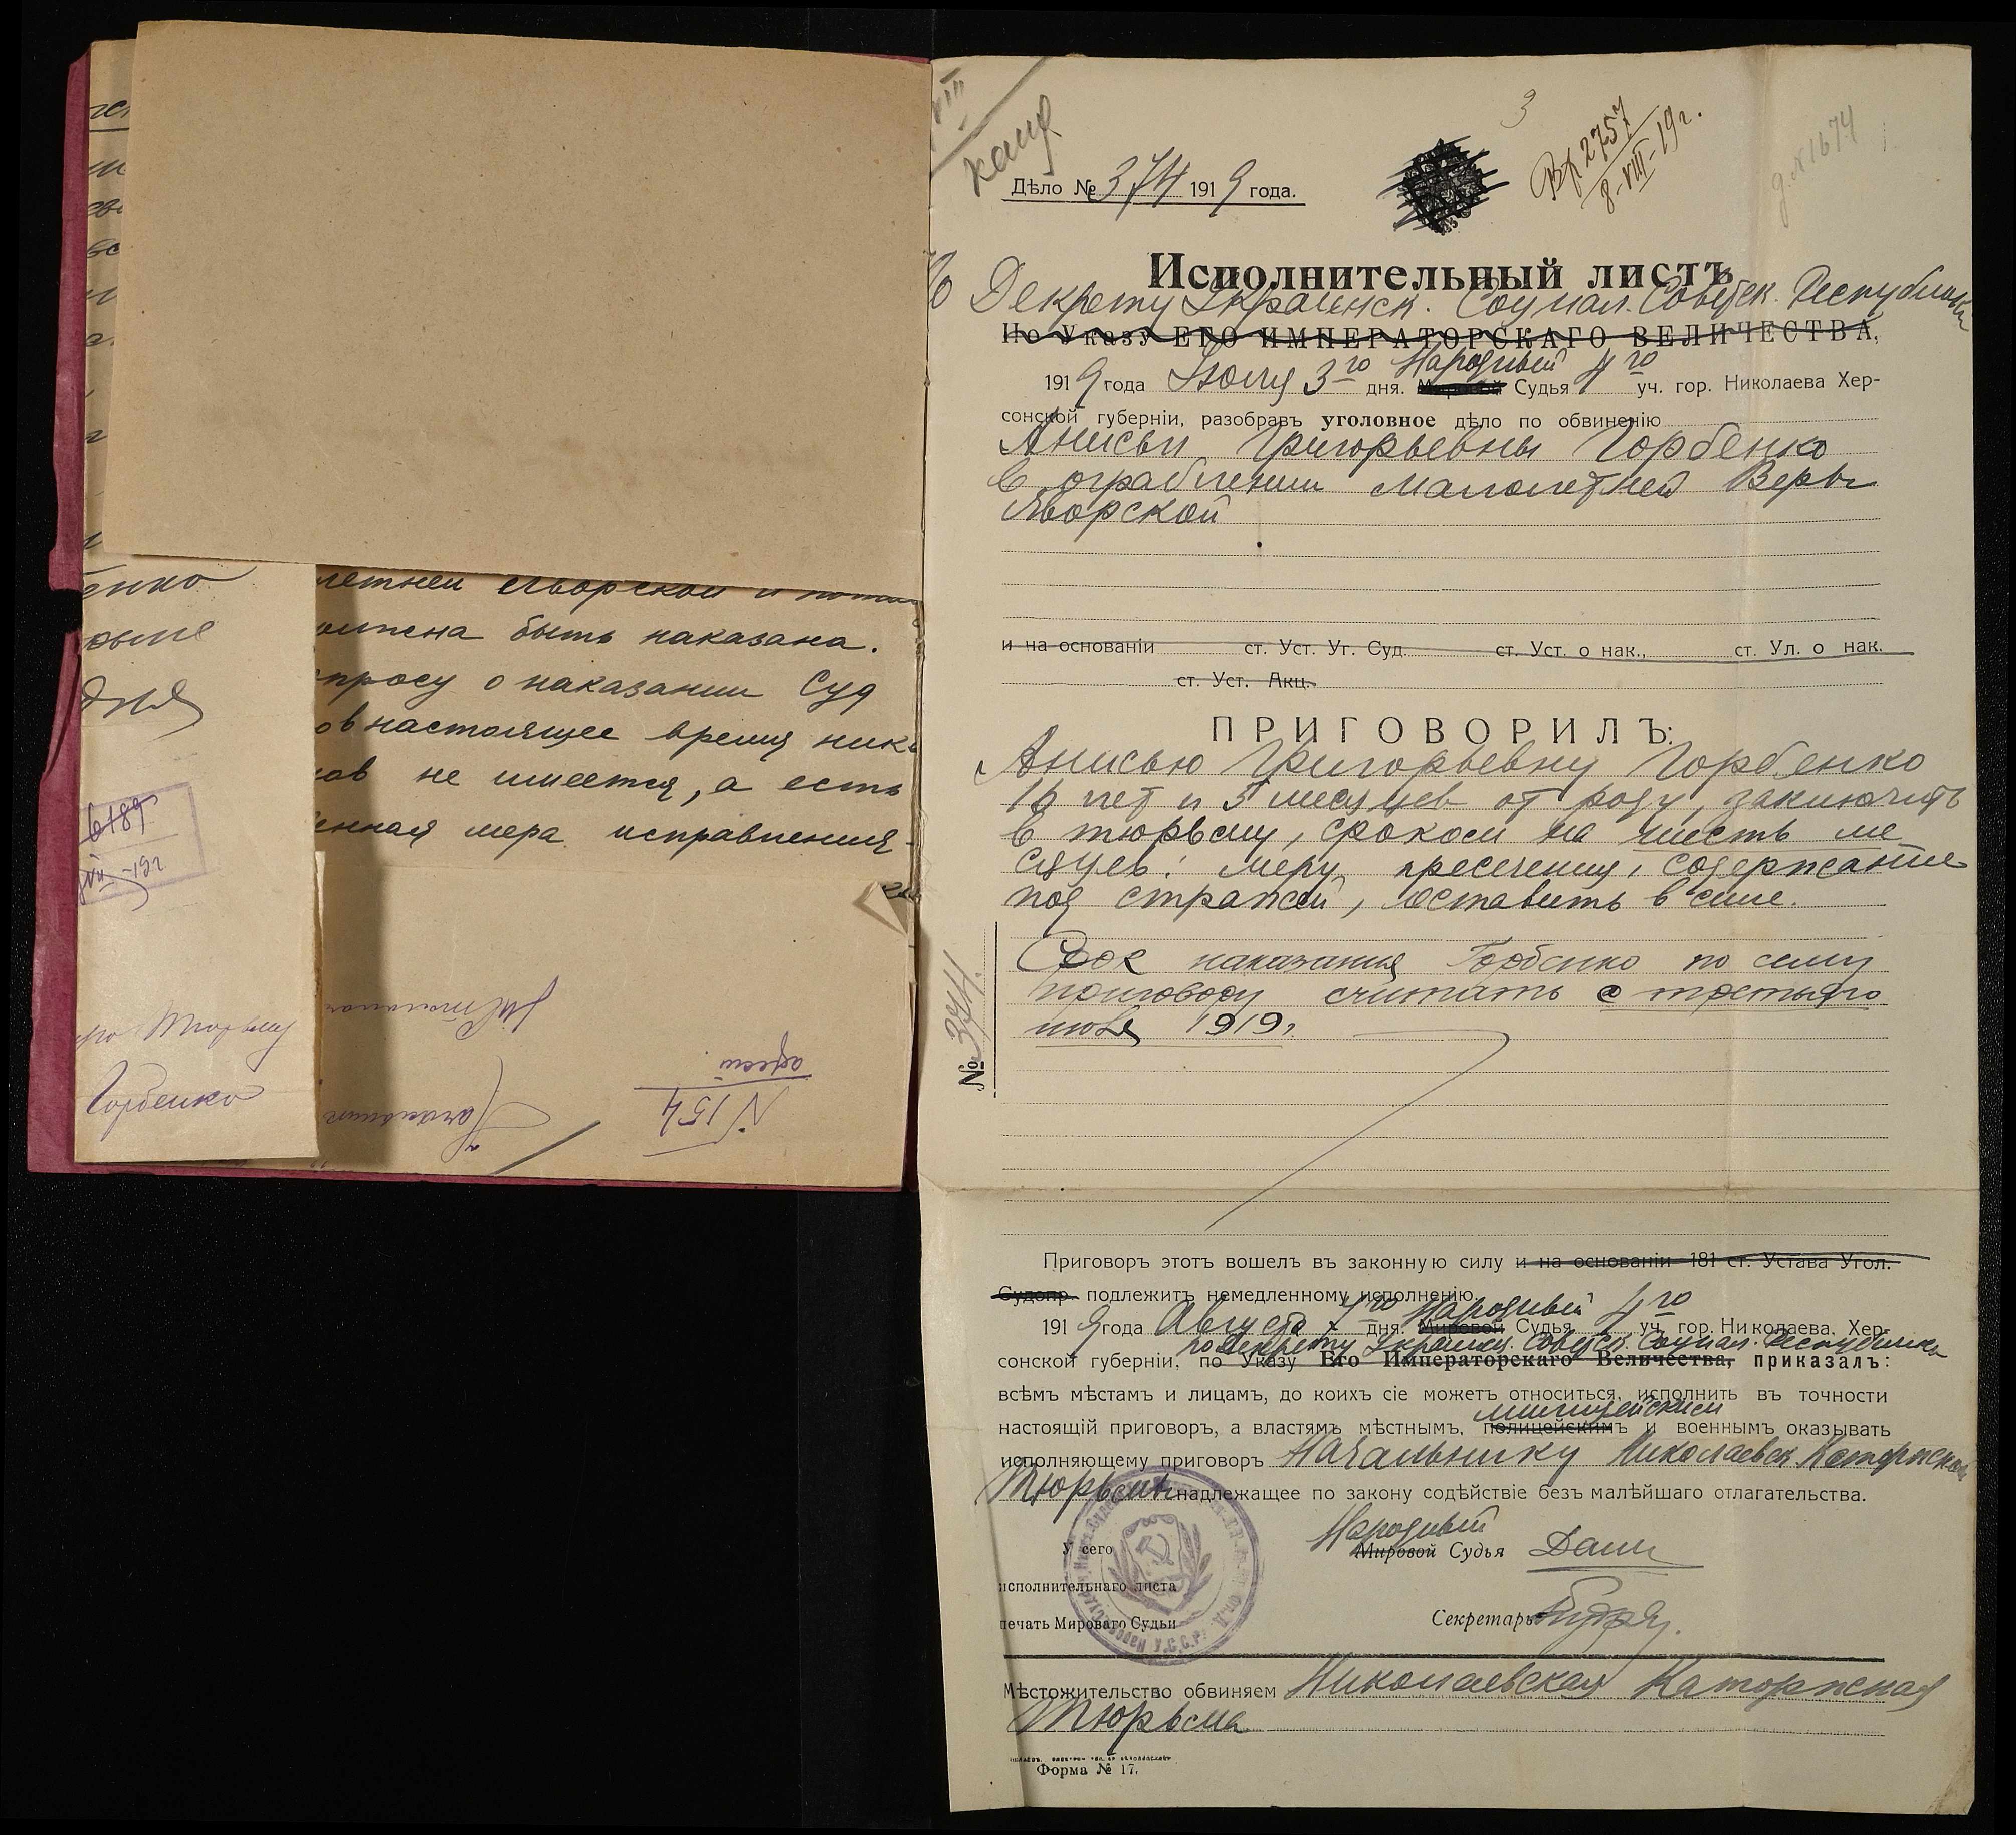 летней Яворской и
быть наказана.
о наказании Суд
настоящее время
не имеется, а есть
мера исправления
189
VII-19г
Тюрьму
Горбенко
N 154
3
Вх 2757
8-VIII-19г.
д. № 1674
Дѣло № 374 1919 года.
Исполнительный листъ
Декрету Украинск. Социал. Советск. Республики
По Указу ЕГО ИМПЕРАТОРСКАГО ВЕЛИЧЕСТВА,
Народный
1919 года Июля 3го дня. Мировой Судья 4го уч. гор. Николаева Хер-
сонской губерніи, разобравъ уголовное дѣло по обвиненію
Анисьи Григорьевны Горбенко
в ограблении малолетней Веры
Яворской
и на основаніи ст. Уст. Уг. Суд. ст. Уст. о нак., ст. Ул. о нак.
ст. Уст. Акц.
ПРИГОВОРИЛЪ:
Анисью Григорьевну Горбенко
лет и 5 месяцев от роду, заключить
в тюрьму, сроком на шесть ме
сяцев: меру пресечения, содержание
под стражей, оставить в силе.
Срок наказания Горбенко по сему
приговору считать с третьяго
июля 1919г.
№ 374.
Приговоръ этотъ вошелъ въ законную силу и на основаніи 181 ст. Устава Угол.
Судопр. подлежитъ немедленному исполнению.
Народный
1919 года Августа 7го дня. Мировой Судья 4го уч. гор. Николаева, Хер-
по Декрету Украинск. Советск. Социал. Республики
сонской губерніи, по Указу Его Императорскаго Величества, приказалъ:
всѣмъ мѣстамъ и лицамъ, до коихъ сіе можетъ относиться, исполнить въ точности
милицейским
настоящій приговоръ, а властямъ мѣстнымъ, полицейскимъ и военнымъ оказывать
исполняющему приговоръ Начальнику Николаевск. Каторжской
Тюрьмы надлежащее по закону содѣйствіе безъ малѣйшаго отлагательства.
Народный
У сего Мировой Судья
исполнительнаго листа
печать Мирового Судьи Секретарь
У.С.С.Р.
Мѣстожительство обвиняем Николаевская Каторжская
Тюрьма
Форма № 17.